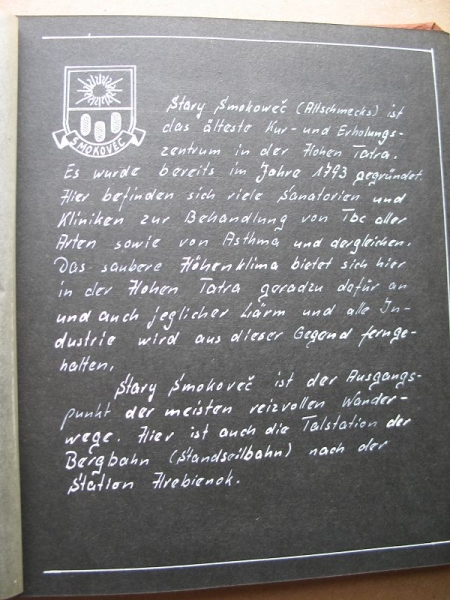 SMOKOVEČ
Stary Smokoveč (Altschmecks) ist
das älteste Kur- und Erholungs-
zentrum in der Hohen Tatra.
Es wurde bereits im Jahre 1793 gegründet
Hier befinden sich viele Sanatorien und
Kliniken zur Behandlung von Tbc aller
Arten sowie von Asthma und dergleichen.
Das saubere Höhenklima bietet sich hier
in der Hohen Tatra geradzu dafür an
und auch jeglicher Lärm und alle In-
dustrie wird aus dieser Gegend fernge-
halten.
Stary Smokoveč ist der Ausgangs-
punkt der meisten reizvollen Wander-
wege. Hier ist auch die Talstation der
Bergbahn (Standseilbahn) nach der
Station Hrebienok.